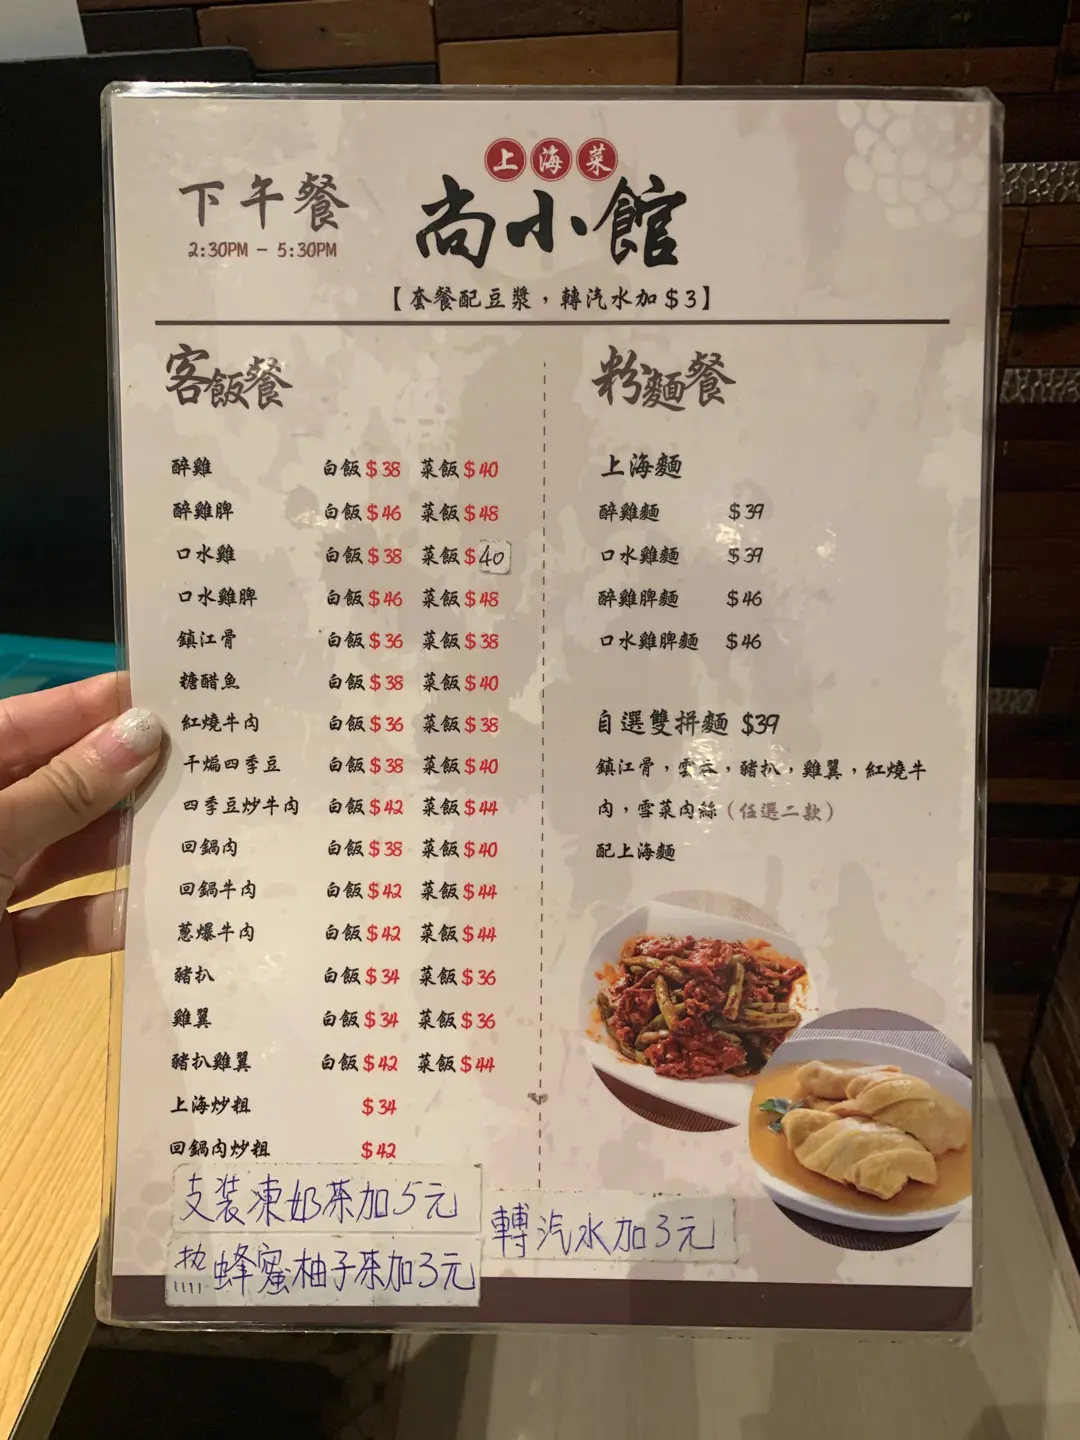 上海菜
下午餐
尚小館
2:30PM – 5:30PM
【套餐配豆漿，轉汽水加$3】
客飯餐
醉雞 白飯$38 菜飯$40
醉雞脾 白飯$46 菜飯$48
口水雞 白飯$38 菜飯$40
口水雞脾 白飯$46 菜飯$48
鎮江骨 白飯$36 菜飯$38
糖醋魚 白飯$38 菜飯$40
紅燒牛肉 白飯$36 菜飯$38
干煸四季豆 白飯$38 菜飯$40
四季豆炒牛肉 白飯$42 菜飯$44
回鍋肉 白飯$38 菜飯$40
回鍋牛肉 白飯$42 菜飯$44
蔥爆牛肉 白飯$42 菜飯$44
豬扒 白飯$34 菜飯$36
雞翼 白飯$34 菜飯$36
豬扒雞翼 白飯$42 菜飯$44
上海炒粗 $34
回鍋肉炒粗 $42
粉麵餐
上海麵
醉雞麵 $39
口水雞麵 $39
醉雞脾麵 $46
口水雞脾麵 $46
自選雙拼麵 $39
鎮江骨，雲吞，豬扒，雞翼，紅燒牛
肉，雪菜肉絲（任選二款）
配上海麵
支裝凍奶茶加5元
蜂蜜柚子茶加3元
轉汽水加3元